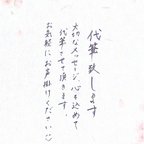 代筆致します
大切なメッセージ、心を込めて
代筆させて頂きます。
お気軽にお声掛けください☺